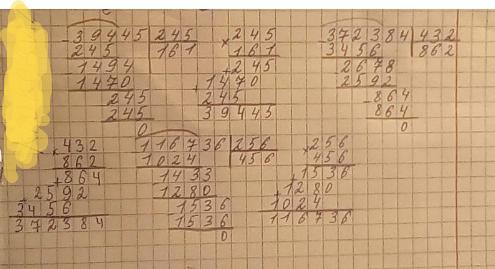 39445 | 245
245 | 161
1494
1470
245
245
0
× 245
161
+ 245
1470
245
39445
372384 | 432
3456 | 862
2678
2592
864
864
0
× 432
862
+ 864
2592
3456
372384
116736 | 256
1024 | 456
1433
1280
1536
1536
0
× 256
456
+ 1536
1280
1024
116736